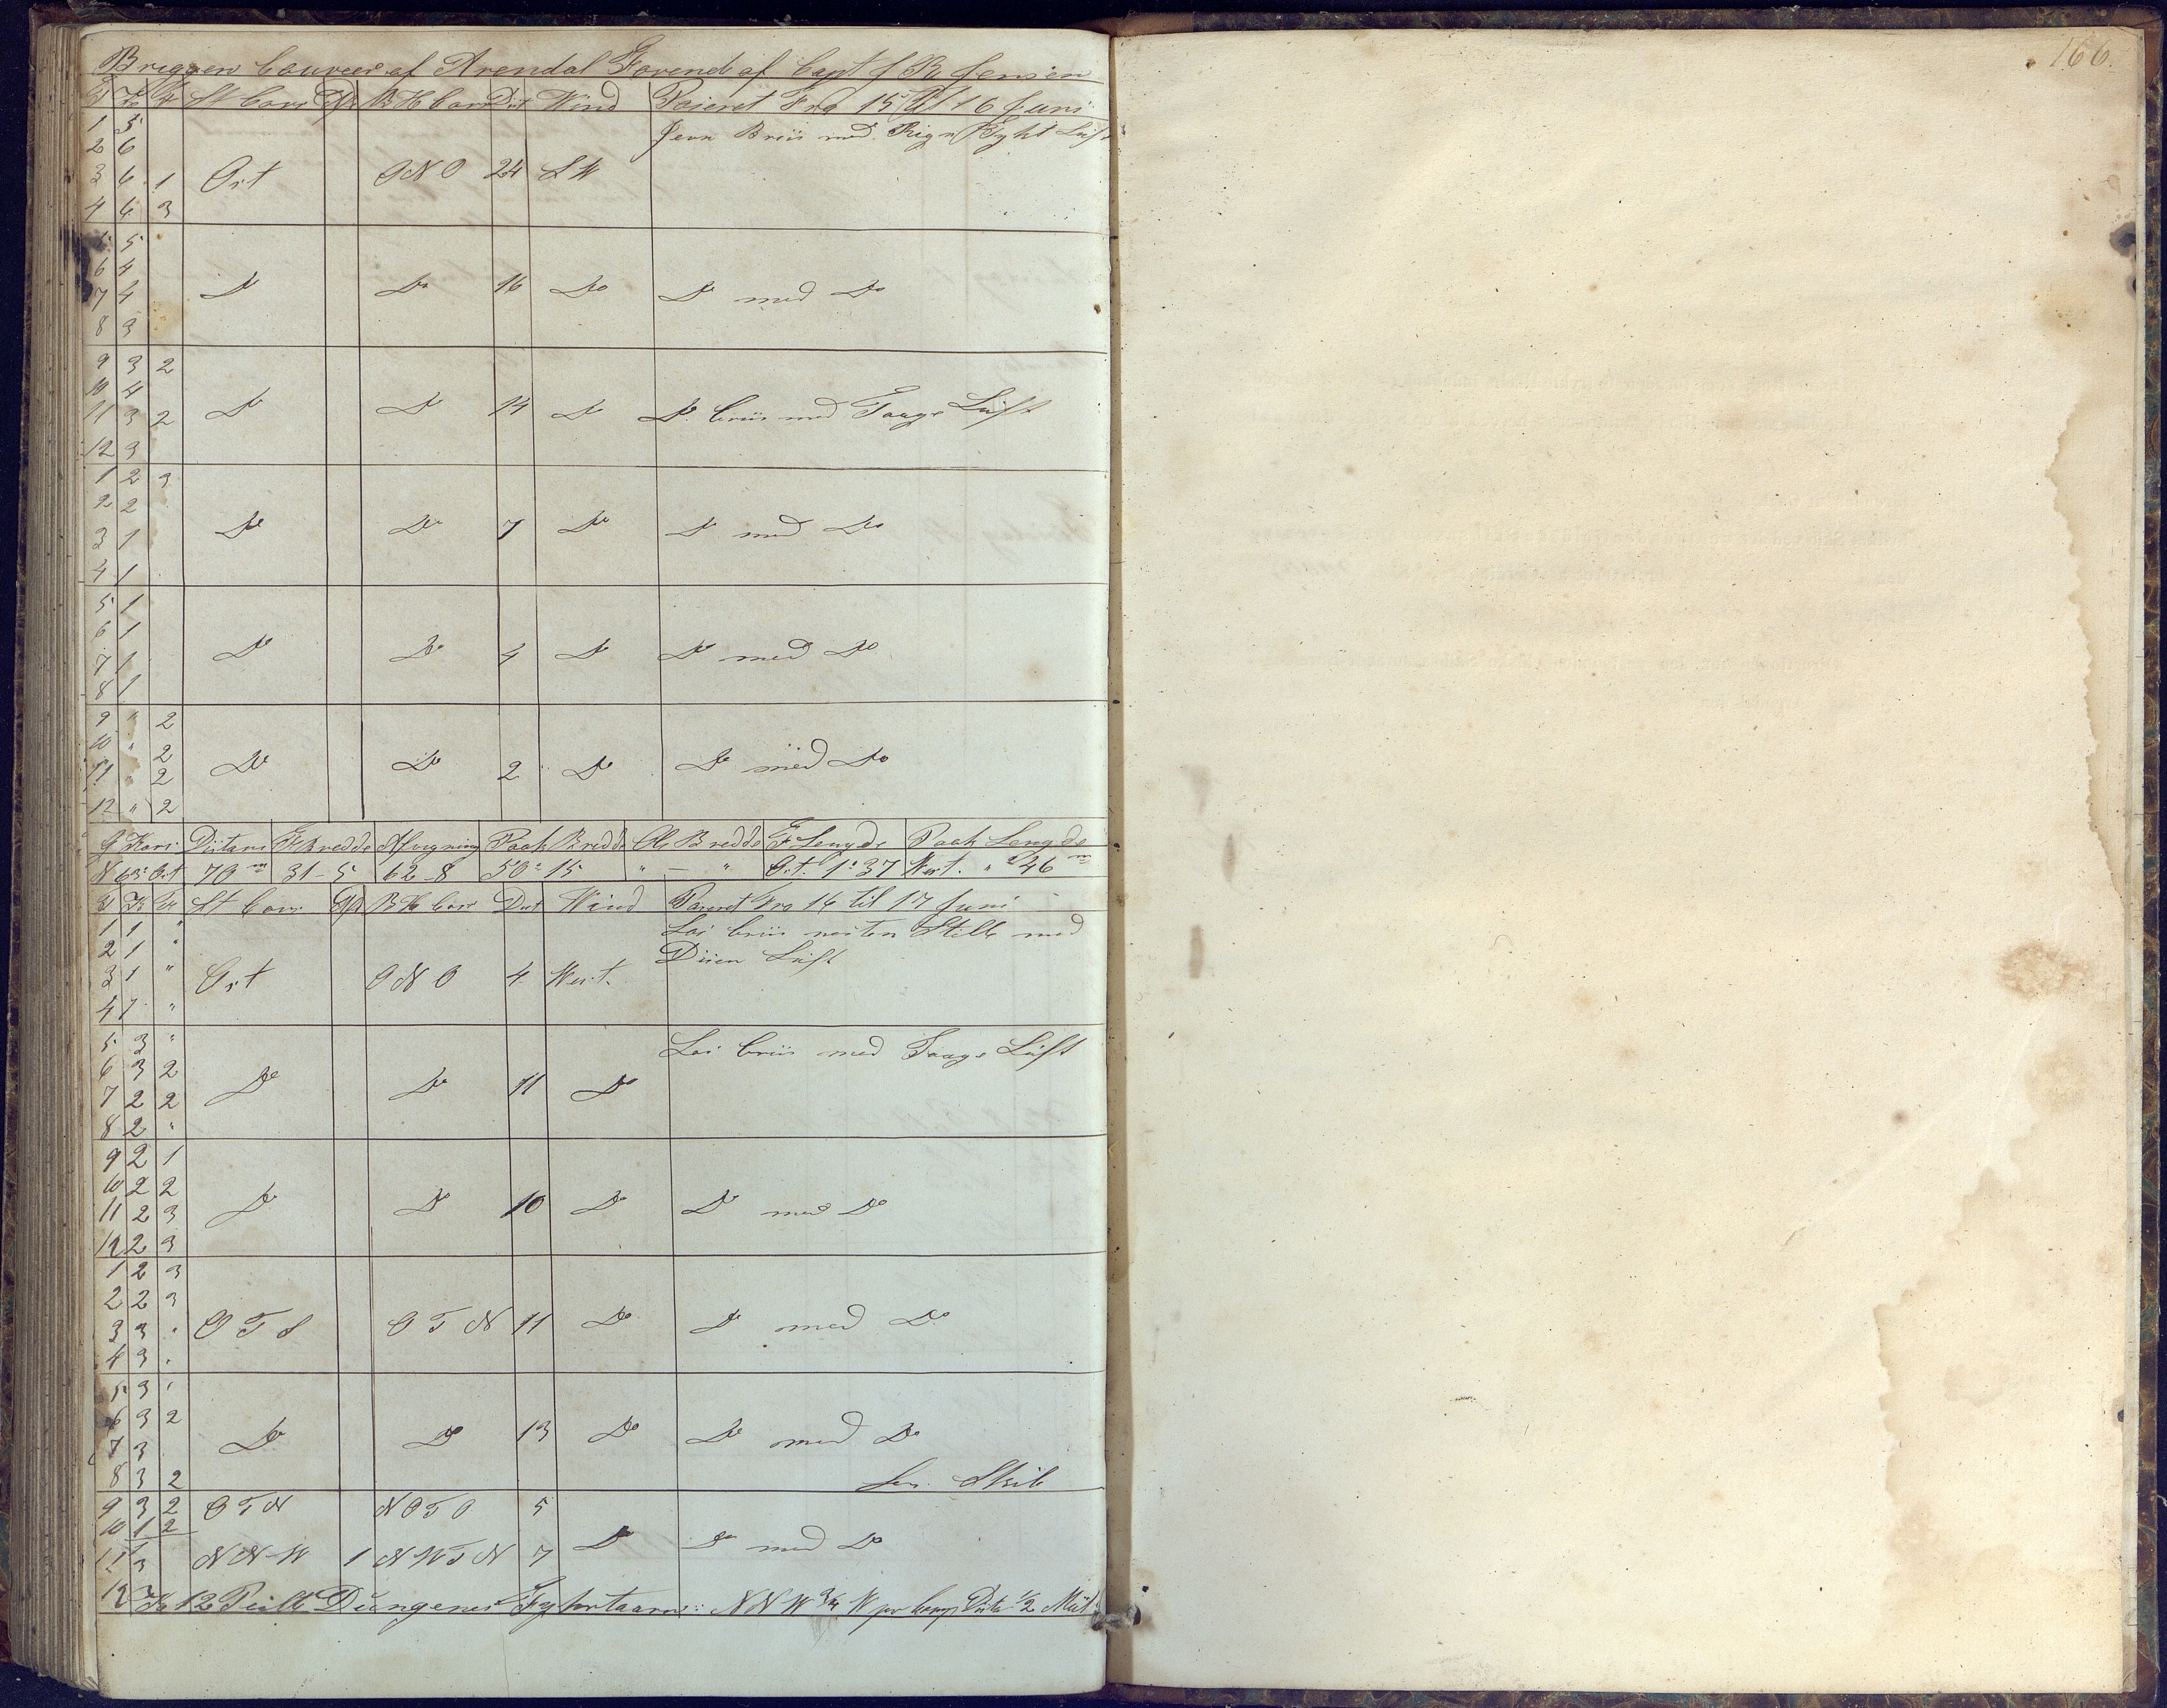 Briggen Courier af Arendal Förend af Capt J Bg Jensen
T K F St Cours Afd B H Cours Dist Wind Passeret Fra 15 til 16 Juni
1 5 Jevn Briis med Regn Tyk Luft
2 6
3 6 1 Ost ONO 24 SW
4 6 3
5 5
6 4
7 4 Do Do 16 Do Do med Do
8 3
9 3 2
10 4
11 3 2 Do Do 14 Do Do briis med Taage Luft
12 3
1 2 3
2 2
3 1 Do Do 7 Do Do med Do
4 1
5 1
6 1
7 1 Do Do 4 Do Do med Do
8 1
9 " 2
10 " 2
11 " 2 Do Do 2 Do Do med Do
12 " 2
G Kors Distans F Bredde Afvigning Paak Bredde Ob Bredde F Lengde Paak Lengde
N 63° Ost 70 m 31-5 62-8 50°15 " — " Ost. 1°37 West. " 46 m
T K F St Cours Afd B H Cours Dist Wind Passeret Fra 16 til 17 Juni
1 1 " Løi briis nesten Stille med
2 1 " Diisen Luft
3 1 " Ost ONO 4 West.
4 1 "
5 3 " Løi briis med Taage Luft
6 3 2
7 2 2 Do Do 11 Do
8 2 "
9 2 1
10 2 2
11 2 3 Do Do 10 Do Do med Do
12 2 3
1 2 3
2 2 3
3 3 " O T S O T N 11 Do Do med Do
4 3 "
5 3 "
6 3 2
7 3 Do Do 13 Do Do med Do
8 3 2
9 3 2 O T N NO T O 5
10 1 2 Do Do med Do
11 3 NNW 1 NW T N 7
12 3 Kl 12 Peilte Dungenes Fyhrtaarn: NNW 3/4 W pr Comp Dista 1/2 Miil
166.